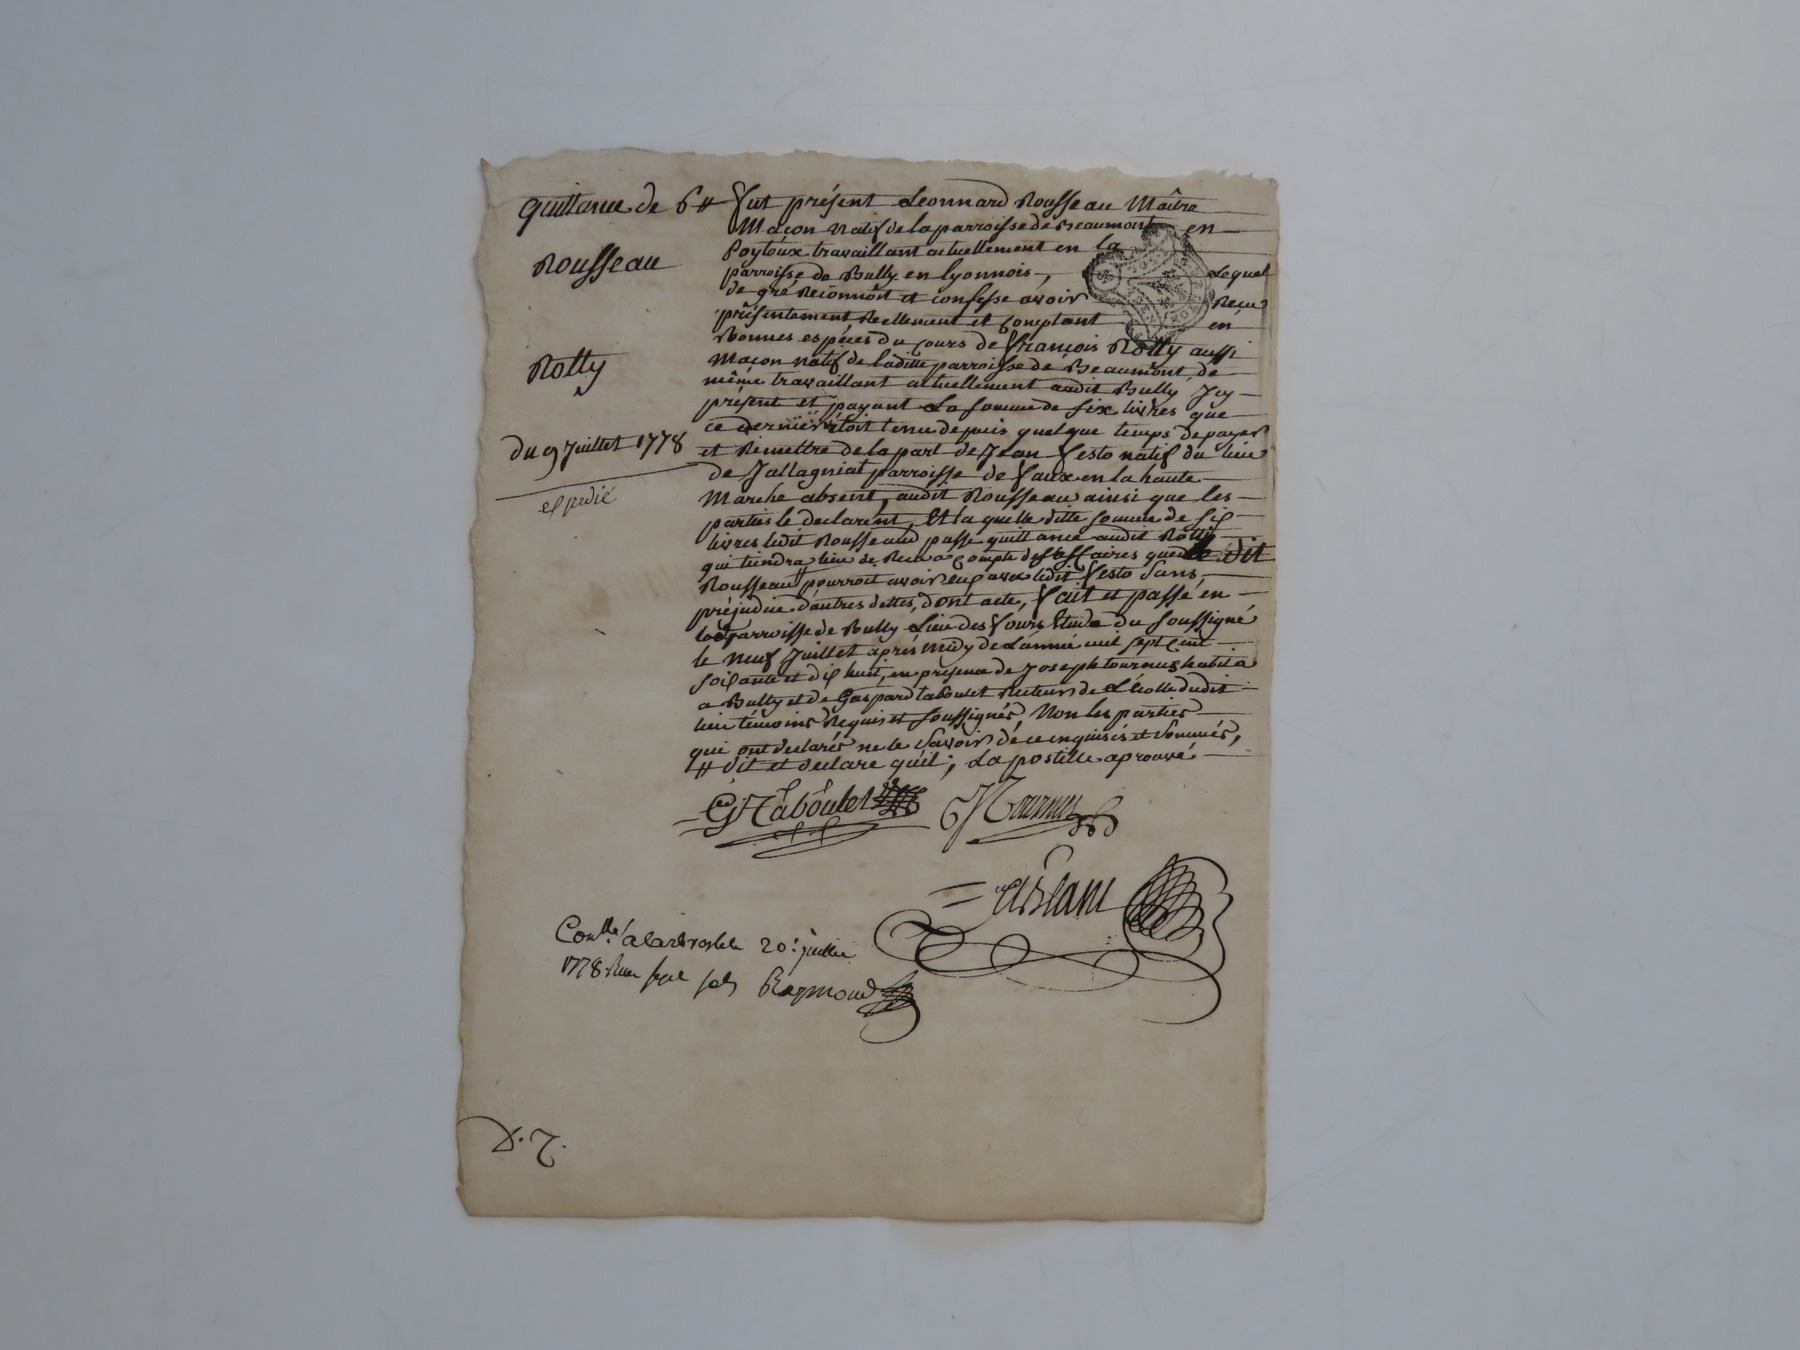 quittance de 6 ₶
Rousseau
Rolly
du 9 Juillet 1778
expedié
Fut présent Leonnard Rousseau Maitre
Macon natif de la parroisse de Beaumont en
Poytoux travaillant actuellement en la
parroisse de Bully en lyonnois, Lequel
de gré Reconnoit et confesse avoir Reçu
présentement Reellement et comptant en
Bonnes espéces du Cours de François Rolly aussi
Maçon natif de laditte parroisse de Beaumont, de
même travaillant actuellement audit Bully Icy
présent et payant La somme de six livres que
ce dernier étoit tenu depuis quelque temps de payer
et Remettre de la part de Jean Festo natif du lieu
de Jallagniat parroisse de Faux en la haute
Marche absent, audit Rousseau ainsi que les
parties le declarent, Et la quelle ditte somme de six
livres ledit Rousseau passe quittance audit Rolly
qui tiendra lieu de Recu a compte des affaires que le dit
Rousseau pourroit avoir eux avec ledit Festo Sans
préjudice d'autres dettes, dont acte, Fait et passé en
parroisse de Bully Lieu des Fours Etude du soussigné
le neuf Juillet aprés midy de L'année mil sept cent
soixante et dix huit, en présence de Joseph tournus habit a
a Bully et de Gaspard taboulet Recteur de L'écolle dudit
lieu témoins Requis et soussignés, Non les parties
qui ont declarés ne le savoir de ce enquises et sommés,
₶ dit et declare qu'il; La postille aprouvé
G Taboulet J Tournus
Conllé a larbresle le 20e juillet
1778 Recu sept sols Raymond
D. 7.